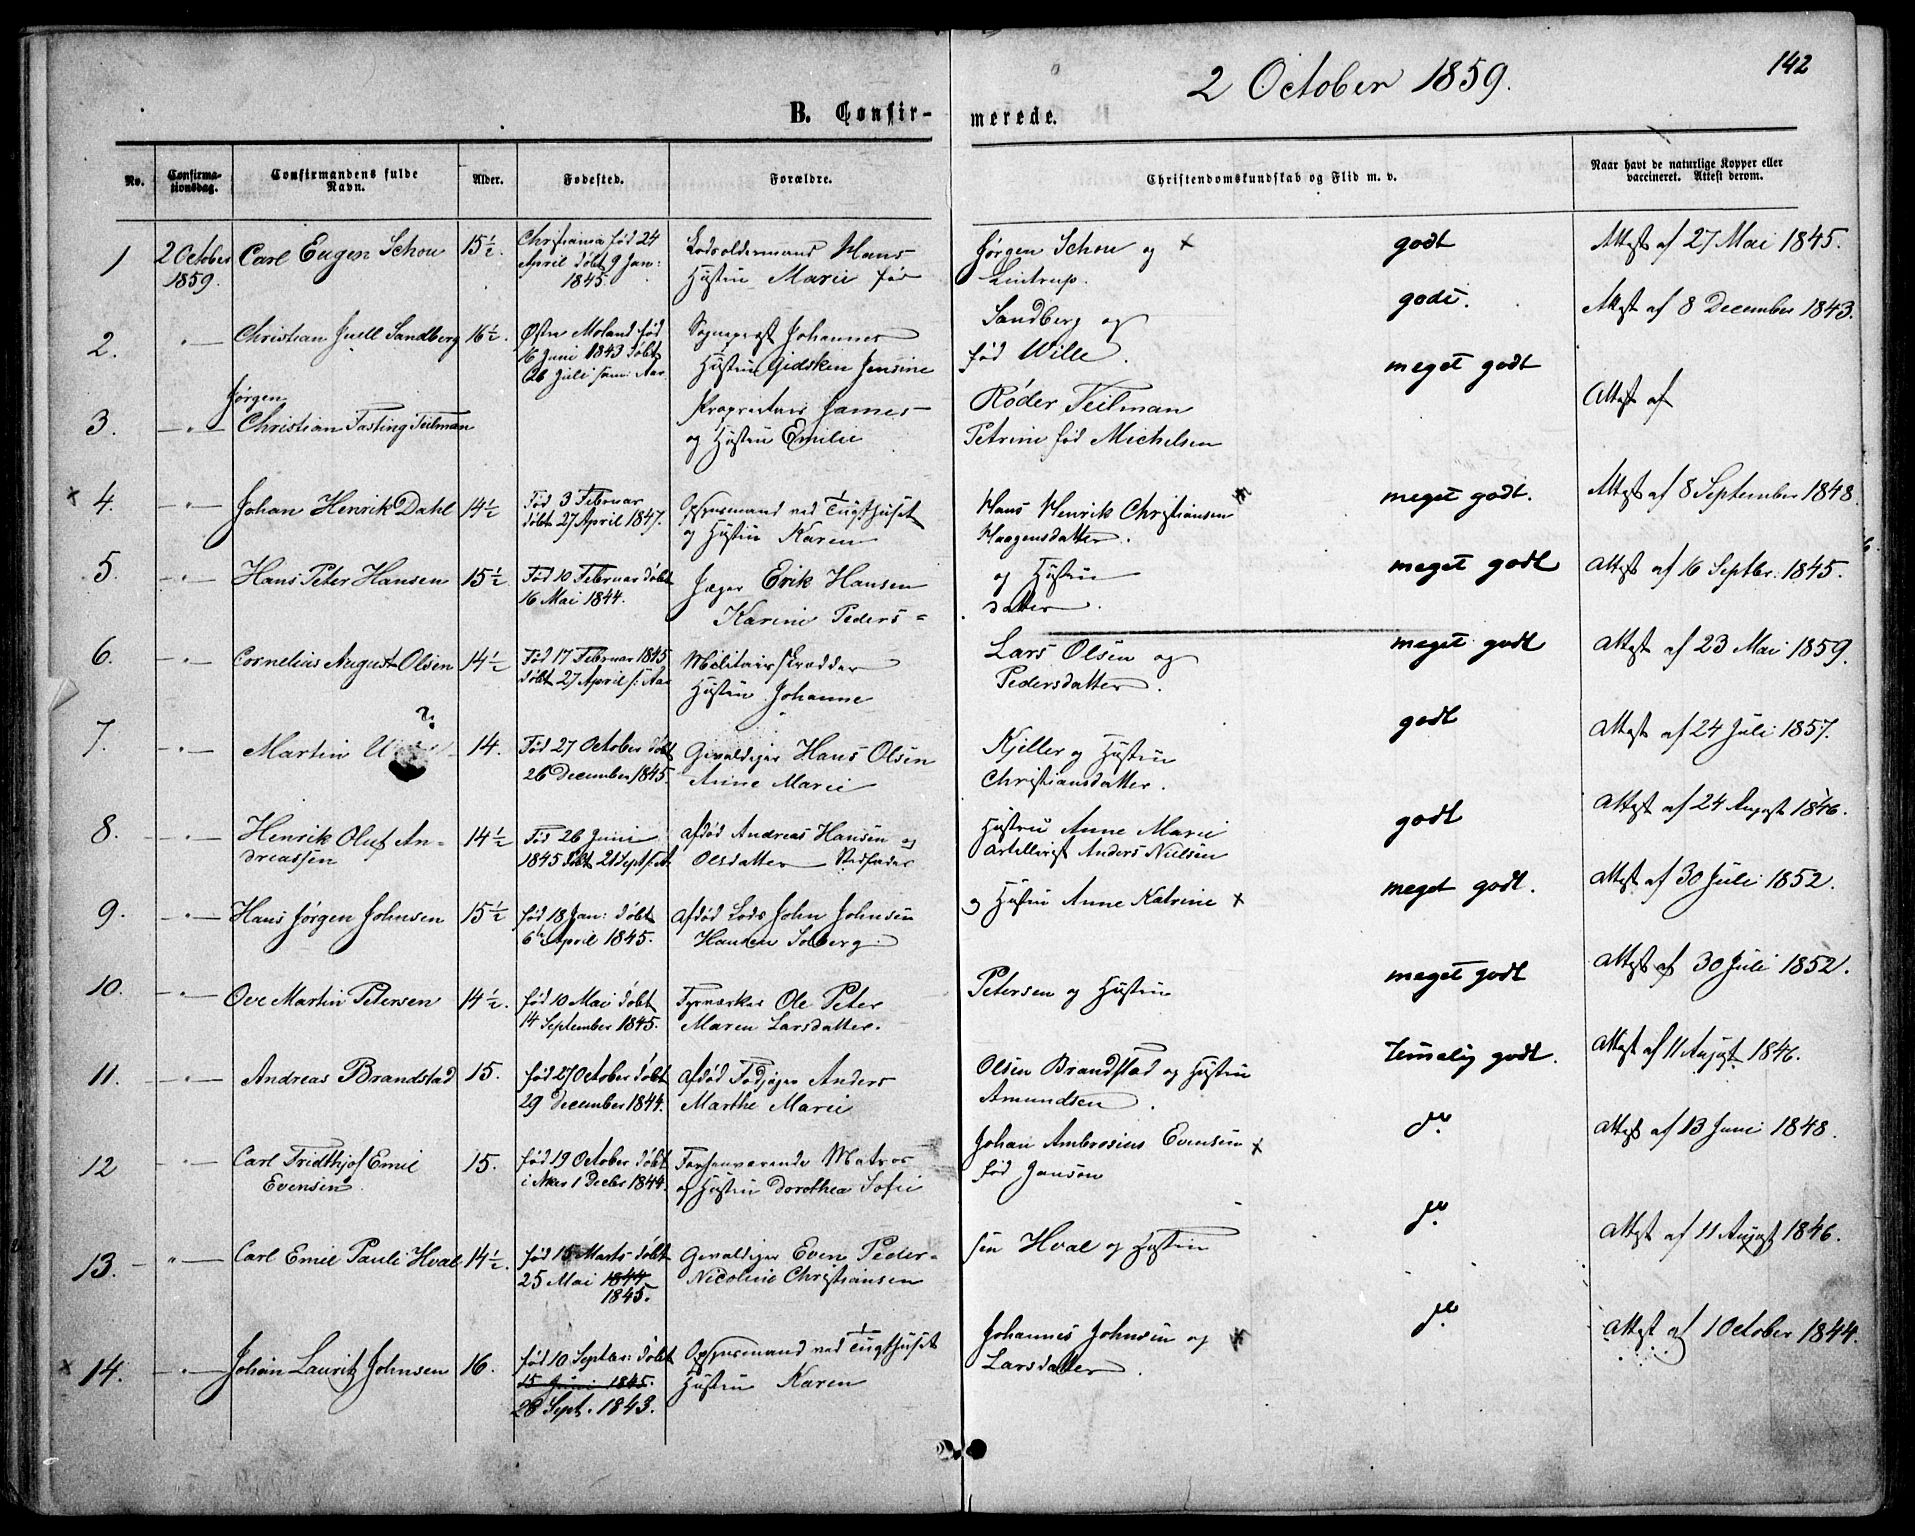 142
2 October 1859.
B. Confir-
merede.
No.
Confirma-
tionsdag.
Confirmandens fulde
Navn.
Alder.
Fødested.
Forældre.
Christendomskundskab og Flid m. v.
Naar havt de naturlige Kopper eller
vaccineret. Attest derom.
1 2 October 1859. Carl Eugen Schou 15½. Christiania født 24
April døbt 9 Jan:
1845.
Lodsoldermand Hans Jørgen Schou og × godt Attest af 27 Mai 1845.
Hustru Marie fød Lintrup.
2. —"— Christian Juell Sandberg 16½. Østre Moland fød
6 Juni 1843 døbt
26 Juli sam: Aar
Sognepræst Johannes Sandberg og godt. Attest af 8 December 1843.
Hustru Gidsken Jensine fød Wille.
3. —"— Jørgen
Christian Fasting Teilman
Proprietair James Røder Teilman meget godt Attest af
og Hustru Emilie Petrine fød Michelsen
× 4. —"— Johan Henrik Dahl 14½ Fød 3 Februar
døbt 27 April 1847.
Opsynsmand ved Tugthuset Hans Henrik Christiansen × meget godt. Attest af 8 September 1848.
og Hustru Karen Haagensdatter.
5. —"— Hans Peter Hansen 15½. Fød 10 Februar døbt
16 Mai 1844.
Jæger Erik Hansen og Hustru meget godt Attest af 16 Septbr. 1845.
Karine Peders- datter.
6. —"— Cornelius August Olsen 14½ Fød 17 Februar 1845
døbt 27 April s: Aar
Militairskrædder Lars Olsen og meget godt Attest af 23 Mai 1859.
Hustru Johanne Pedersdatter.
7. —"— Martin 14. Fød 27 October døbt
26 December 1845.
Gevaldiger Hans Olsen Kjeller og Hustru godt Attest af 24 Juli 1857.
Anne Marie Christiansdatter.
8. —"— Henrik Oluf An-
dreassen
14½ Fød 26 Juni
1845 døbt 21 Sept s: A
Afdød Andreas Hansen og Hustru Anne Marie godt Attest af 24 August 1846.
Olsdatter Stedfader Artillerist Anders Nielsen
9. —"— Hans Jørgen Johnsen 15½ fød 18 Jan: døbt
6te April 1845.
Afdød Lods John Johnsen og Hustru Anne Katrine × meget godt. Attest af 30 Juli 1852.
Hansen Solberg.
10. —"— Ove Martin Petersen 14½. fød 10 Mai døbt
14 September 1845.
Fyrværker Ole Peter Petersen og Hustru meget godt Attest af 30 Juli 1852.
Maren Larsdatter.
11. —"— Andreas Brandstad 15. fød 27 October døbt
29 December 1844.
Afdød Fodjæger Anders Olsen Brandstad og Hustru temelig godt. Attest af 11 August 1846.
Marthe Marie Amundsen.
12 —"— Carl Fridthjof Emil
Evensen.
15. fød 19 October døbt
i Aker 1 Decbr 1844.
Forhenværende Matros Johan Ambrosius Evensen × do. Attest af 13 Juni 1848.
og Hustru Dorothea Sofie fød Jansen
13. —"— Carl Emil Pauli Hval 14½. fød 15 Marts døbt
25 Mai 1844
1845.
Gevaldiger Even Peder- sen Hval og Hustru do. Attest af 11 August 1846.
Nicoline Christiansen
× 14. —"— Johan Lauritz Johnsen 16. fød 10 Septbr: døbt
15 Juni 1845.
28 Sept. 1843.
Opsynsmand ved Tugthuset Johannes Johnsen og × do. Attest af 1 October 1844.
Hustru Karen Larsdatter.